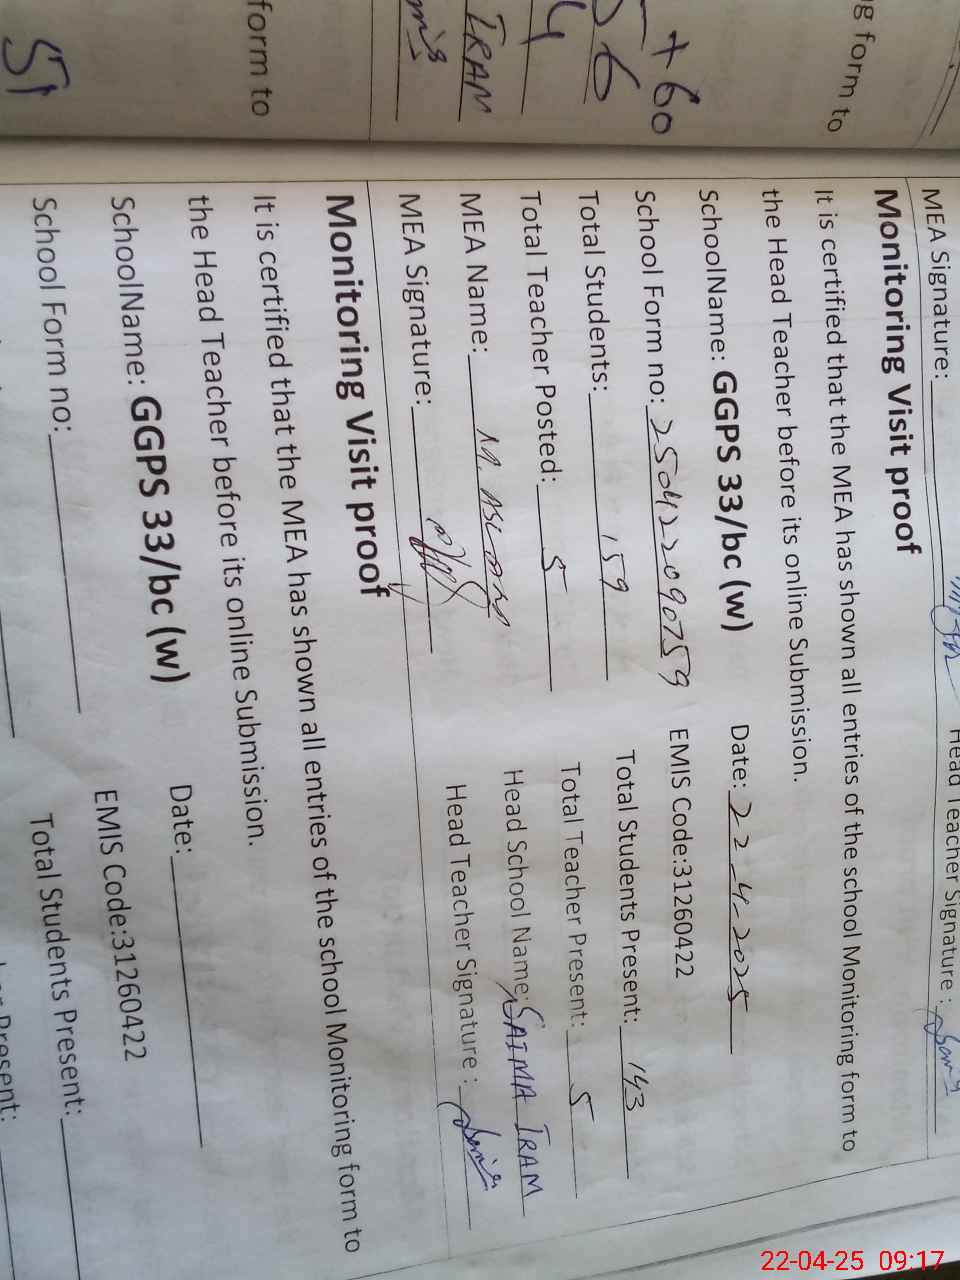 MEA Signature:
Head Teacher Signature :
Monitoring Visit proof
It is certified that the MEA has shown all entries of the school Monitoring form to
the Head Teacher before its online Submission.
SchoolName: GGPS 33/bc (w) Date: 22-4-2025
School Form no: 250422090759 EMIS Code:31260422
Total Students: 159 Total Students Present: 143
Total Teacher Posted: 5 Total Teacher Present: 5
MEA Name: Head School Name: SAIMA IRAM
MEA Signature: Head Teacher Signature :
Monitoring Visit proof
It is certified that the MEA has shown all entries of the school Monitoring form to
the Head Teacher before its online Submission.
SchoolName: GGPS 33/bc (w) Date:
School Form no: EMIS Code:31260422
Total Students Present:
Present:
form to
+60
56
4
IRAM
form to
51
22-04-25 09:17